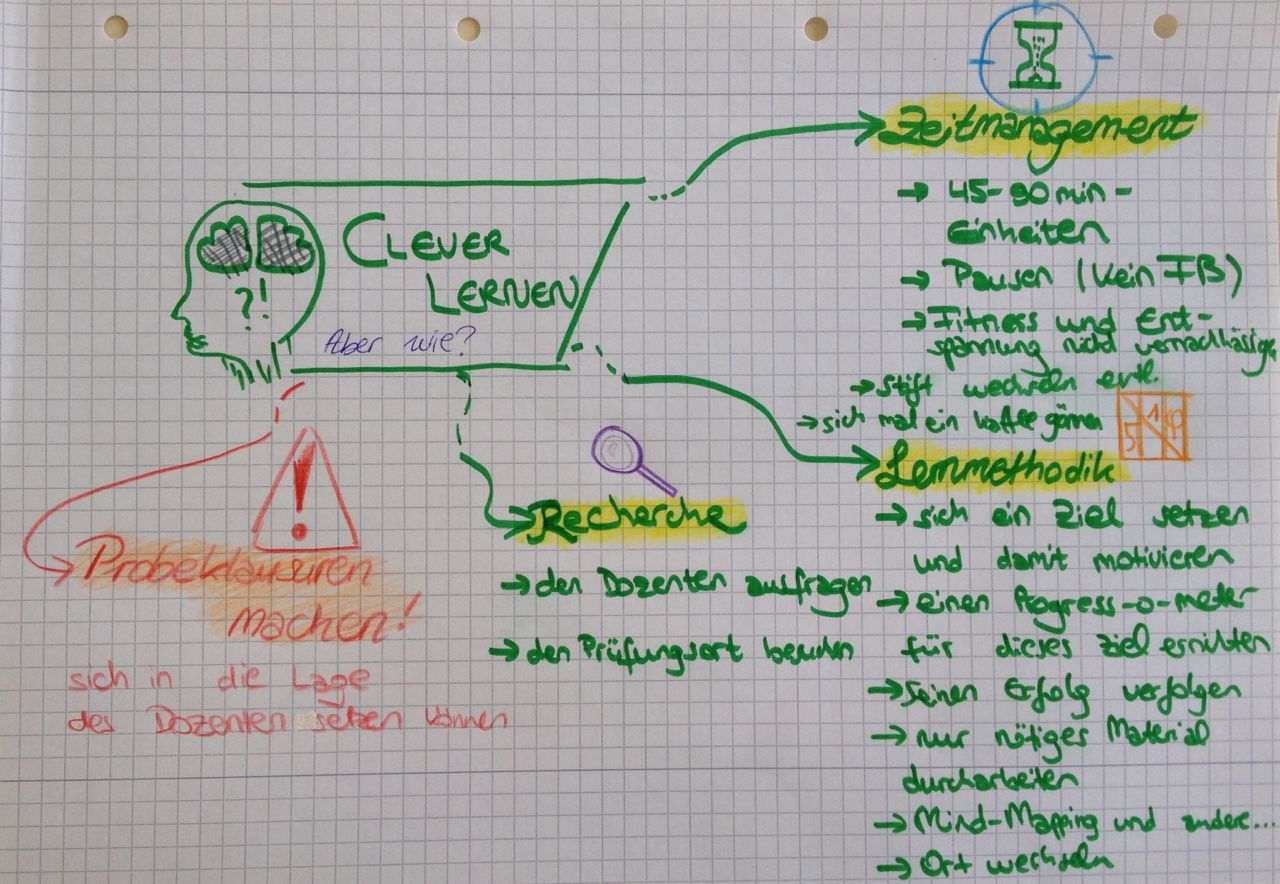 Zeitmanagement
→ 45-90 min -
Einheiten
→ Pausen (kein FB)
→ Fitness und Ent-
spannung nicht vernachlässigen
→ Stift wechseln evtl.
→ sich mal ein Kaffee gönnen
CLEVER
LERNEN
?!
Aber wie?
Lernmethodik
→ sich ein Ziel setzen
und damit motivieren
→ einen Progress-o-meter
für dieses Ziel errichten
→ seinen Erfolg verfolgen
→ nur nötiges Material
durcharbeiten
→ Mind-Mapping und andere...
→ Ort wechseln
Recherche
→ den Dozenten ausfragen
→ den Prüfungsort besuchen
!
Probeklausuren
machen!
sich in die Lage
des Dozenten setzen können